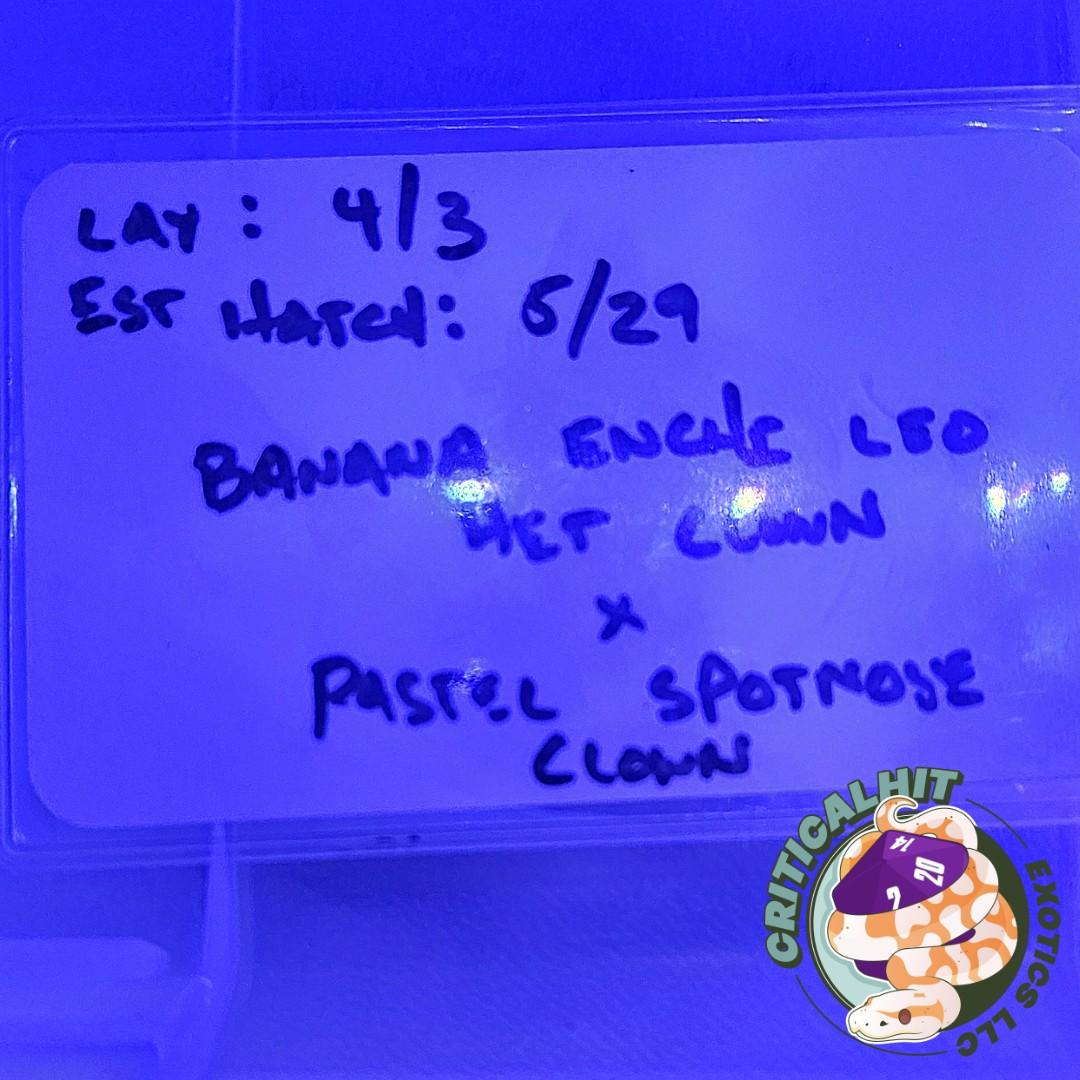 LAY : 4/3
EST HATCH: 5/29
BANANA ENCHI LEO
HET CLOWN
X
PASTEL SPOTNOSE
CLOWN
CRITICALHIT
EXOTICS LLC
14
20
2